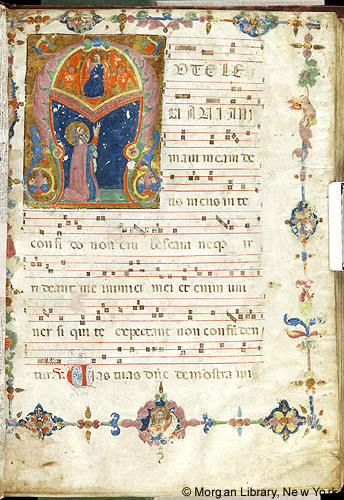 AD TE LE
UAVI ANI
mam meam de
us meus in te
confido non erubescam neq ir
rideant me inimici mei et enim uni
uer si qui te expectant non confunden
tur. Vias tuas dñe demostra mi
© Morgan Library, New York